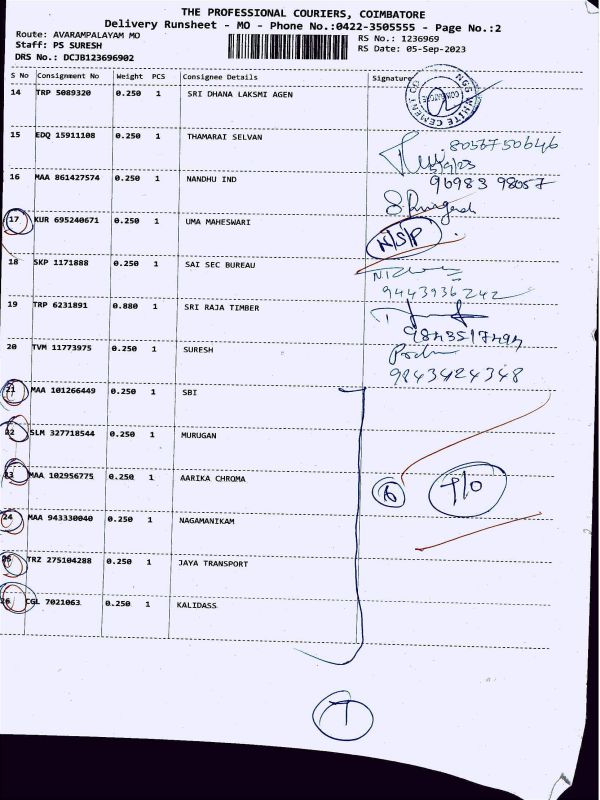 THE PROFESSIONAL COURIERS, COIMBATORE
Delivery Runsheet - MO - Phone No.:0422-3505555 - Page No.:2
Route: AVARAMPALAYAM MO
RS No.: 1236969
Staff: PS SURESH
RS Date: 05-Sep-2023
DRS No.: DCJB123696902
S No Consignment No Weight PCS Consignee Details Signature
14 TRP 5089320 0.250 1 SRI DHANA LAKSMI AGEN
NGS WHITE CEMENT CO
COIMBATORE
15 EDQ 15911108 0.250 1 THAMARAI SELVAN
8056750646
5/9/23
16 MAA 861427574 0.250 1 NANDHU IND
96983 98057
17 KUR 695240671 0.250 1 UMA MAHESWARI
N/S/P
18 SKP 1171888 0.250 1 SAI SEC BUREAU
9443936242
19 TRP 6231891 0.880 1 SRI RAJA TIMBER
9843517494
20 TVM 11773975 0.250 1 SURESH
9843424348
21 MAA 101266449 0.250 1 SBI
22 SLM 327718544 0.250 1 MURUGAN
23 MAA 102956775 0.250 1 AARIKA CHROMA
6 T/O
24 MAA 943330040 0.250 1 NAGAMANIKAM
25 TRZ 275104288 0.250 1 JAYA TRANSPORT
26 CGL 7021063 0.250 1 KALIDASS
7